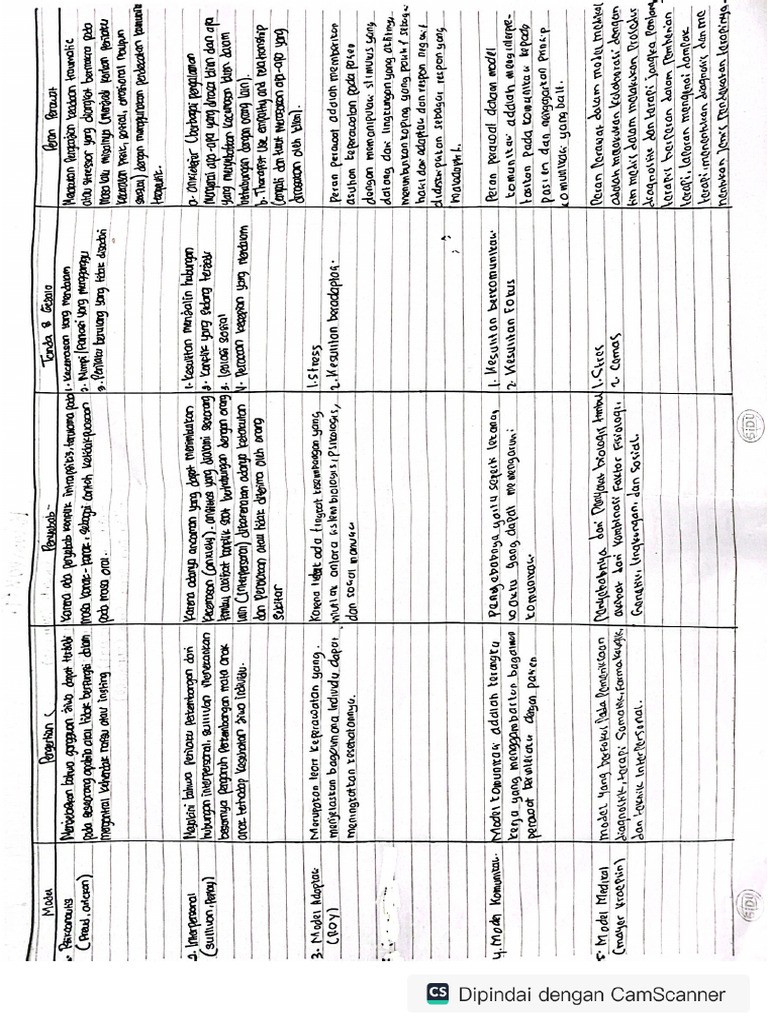 Model
Pengertian
Penyebab
Tanda & Gejala
Peran Perawat
1. Psikoanalisis
(Freud, erickson)
Menjelaskan bahwa gangguan jiwa dapat terjadi
pada seseorang apabila akal tidak berfungsi dalam
mengontrol kehendak nafsu atau insting
Karena ada penyebab konflik intrapsikis, terutama pada
masa kanak-kanak, sebagai contoh ketidakpuasan
pada masa oral.
1. Kecemasan yang mendalam
2. Mimpi/Fantasi yang mengganggu
3. Perilaku berulang yang tidak disadari
Melakukan Pengkajian keadaan traumatic
atau stressor yang dianggap bermakna pada
masa lalu misalnya (menjadi korban perilaku
kekerasan fisik, sosial, emosional maupun
seksual) dengan menggunakan pendekatan komunikasi
terapeutik.
2. Interpersonal
(sullivan, Peplau)
Meyakini bahwa perilaku Perkembangan dari
hubungan interpersonal, sullivan Menekankan
besarnya pengaruh Perkembangan masa anak
anak terhadap kesehatan Jiwa Individu.
Karena adanya ancaman yang dapat menimbulkan
kecemasan (anxiety). ansietas yang dialami seseorang
timbul akibat konflik saat berhubungan dengan orang
lain (interpersonal) dikarenakan adanya ketakutan
dan Penolakan atau tidak diterima oleh orang
sekitar
1. Kesulitan menjalin hubungan
2. Konflik yang sedang terjadi
3. Isolasi sosial
4. Perasaan kesepian yang mendalam
a. anxietas (berbagi pengalaman
mengenai apa-apa yang dirasa klien dan apa
yang menyebabkan kecemasan klien dalam
berhubungan dengan orang lain).
b. Therapist use empathy and relationship
(empati dan turut merasakan apa-apa yang
dirasakan oleh klien).
3. Model Adaptasi
(ROY)
Merupakan teori keperawatan yang
menjelaskan bagaimana individu dapat
meningkatkan kesehatannya.
Karena ada tingkat keseimbangan yang
antara sistem biologis, Psikologis,
dan sosial manusia
1. Stress
2. Kesulitan beradaptasi.
Peran perawat adalah memberikan
asuhan keperawatan pada pasien
dengan memanipulasi stimulus yang
datang dari lingkungan yang akhirnya
menimbulkan koping yang positif sebagai
hasil dari adaptasi dan respon negatif
didefinisikan sebagai respon yang
maladaptif.
4. Model Komunikasi
Model komunikasi adalah kerangka
kerja yang menggambarkan bagaimana
perawat berinteraksi dengan pasien
Penyebabnya yaitu seperti lelang,
waktu yang dapat memengaruhi
komunikasi
1. Kesulitan berkomunikasi
2. Kesulitan Fokus
Peran perawat dalam model
komunikasi adalah menginterpre-
tasikan pada komunikasi kepada
pasien dan mengajarkan prinsip
komunikasi yang baik.
5. Model Medikal
(mayer kraeplin)
model yang berfokus pada pemeriksaan
diagnostik, terapi somatik, farmakologik,
dan teknik Interpersonal.
Penyebabnya dari Penyakit biologis timbul
akibat dari kombinasi Faktor Fisiologi,
Genetik, lingkungan, dan Sosial.
1. Stres
2. Cemas
Peran Perawat dalam model medikal
adalah melakukan kolaborasi dengan
tim medis dalam melakukan prosedur
diagnostik dan terapi jangka panjang
terapis berperan dalam pemberian
terapi, laporan mengenai dampak
terapi, menentukan diagnosis dan me
nentukan Jenis Pendekatan terapinya.
SIDU
SIDU
CS Dipindai dengan CamScanner